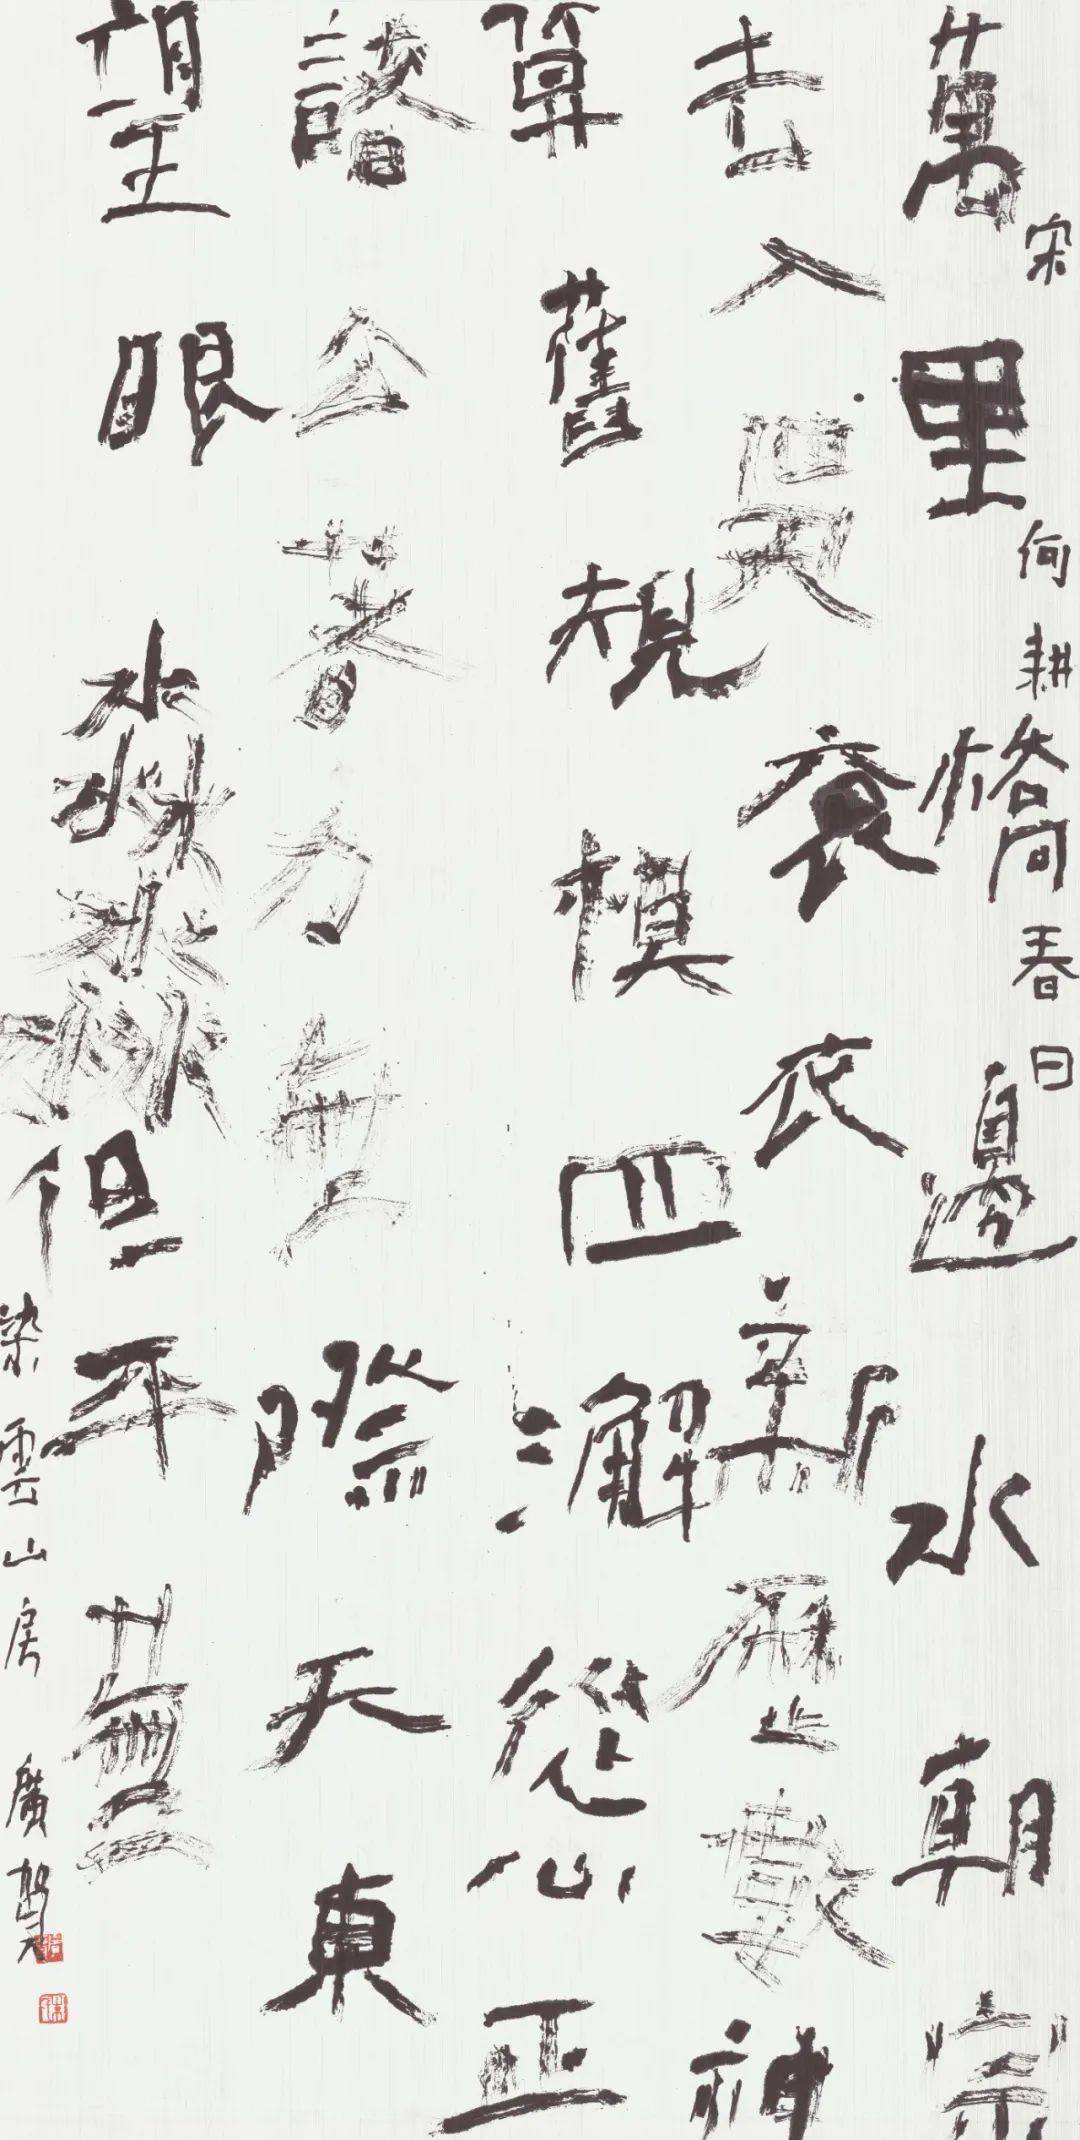 宋 何耕 春日
萬里橋邊水朝宗
去入吳袞衣新歷數神
算舊規模四澥從心正
諸公著力無際天東
望眼淼淼但平蕪
染雲山房 廣